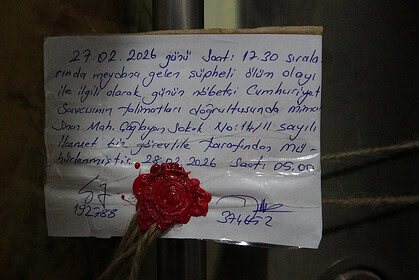 27.02.2026 günü Saat: 17.30 sırala-
rında meydana gelen şüpheli ölüm olayı
ile ilgili olarak günün nöbetçi Cumhuriyet
Savcısının talimatları doğrultusunda mimar
Sinan Mah. Çağlayan Sokak No: 14/11 sayılı
ikamet biz görevlile tarafından mü-
hürlenmiştir. 28.02.2026 Saat: 05.00
192788
374652